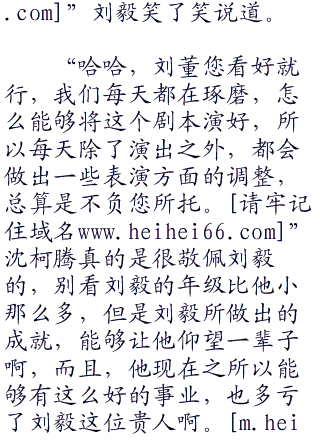 .com]”刘毅笑了笑说道。
“哈哈，刘董您看好就
行，我们每天都在琢磨，怎
么能够将这个剧本演好，所
以每天除了演出之外，都会
做出一些表演方面的调整，
总算是不负您所托。[请牢记
住域名www.heihei66.com]”
沈柯腾真的是很敬佩刘毅
的，别看刘毅的年级比他小
那么多，但是刘毅所做出的
成就，能够让他仰望一辈子
啊，而且，他现在之所以能
够有这么好的事业，也多亏
了刘毅这位贵人啊。[m.hei